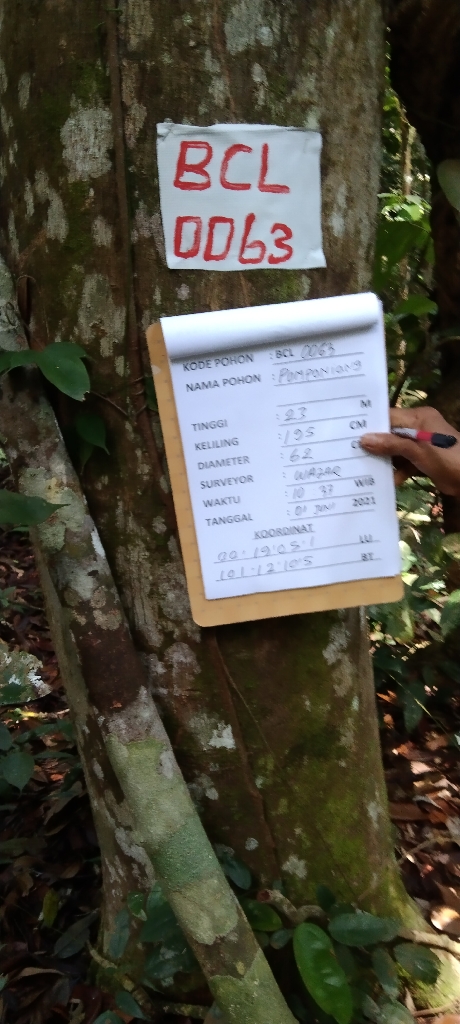 BCL
0063
KODE POHON : BCL 0063
NAMA POHON : PUMPONIONG
TINGGI : 23 M
KELILING : 195 CM
DIAMETER : 62 C
SURVEYOR : WAZAR
WAKTU : 10 37 WIB
TANGGAL : 01 JUNI 2021
KOORDINAT
00.19.05.1 LU
101.12.10.5 BT